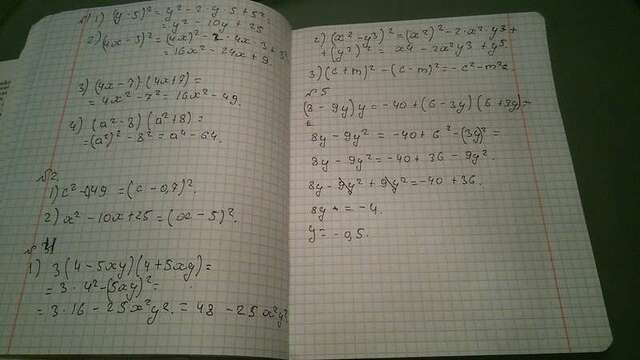 №1
1) (y-5)² = y² - 2·y·5 + 5² =
= y² - 10y + 25
2) (4x-3)² = (4x)² - 2·4x·3 + 3² =
= 16x² - 24x + 9
3) (4x-7)(4x+7) =
= 4x² - 7² = 16x² - 49
4) (a²-8)(a²+8) =
= (a²)² - 8² = a⁴ - 64.
№2
1) c² - 0,49 = (c - 0,7)².
2) x² - 10x + 25 = (x - 5)².
№4
1) 3(4-5xy)(4+5xy) =
= 3·4² - (5xy)² =
= 3·16 - 25x²y² = 48 - 25x²y²
2) (x²-y³)² = (x²)² - 2x²y³ +
+ (y³)² = x⁴ - 2x²y³ + y⁵
3) (c+m)² - (c-m)² = -c² - m² =
№5
(8-9y)y = -40 + (6-3y)(6+3y) =
8y - 9y² = -40 + 6² - (3y)² =
8y - 9y² = -40 + 36 - 9y²
8y - 9y² + 9y² = -40 + 36.
8y = -4
y = -0,5.